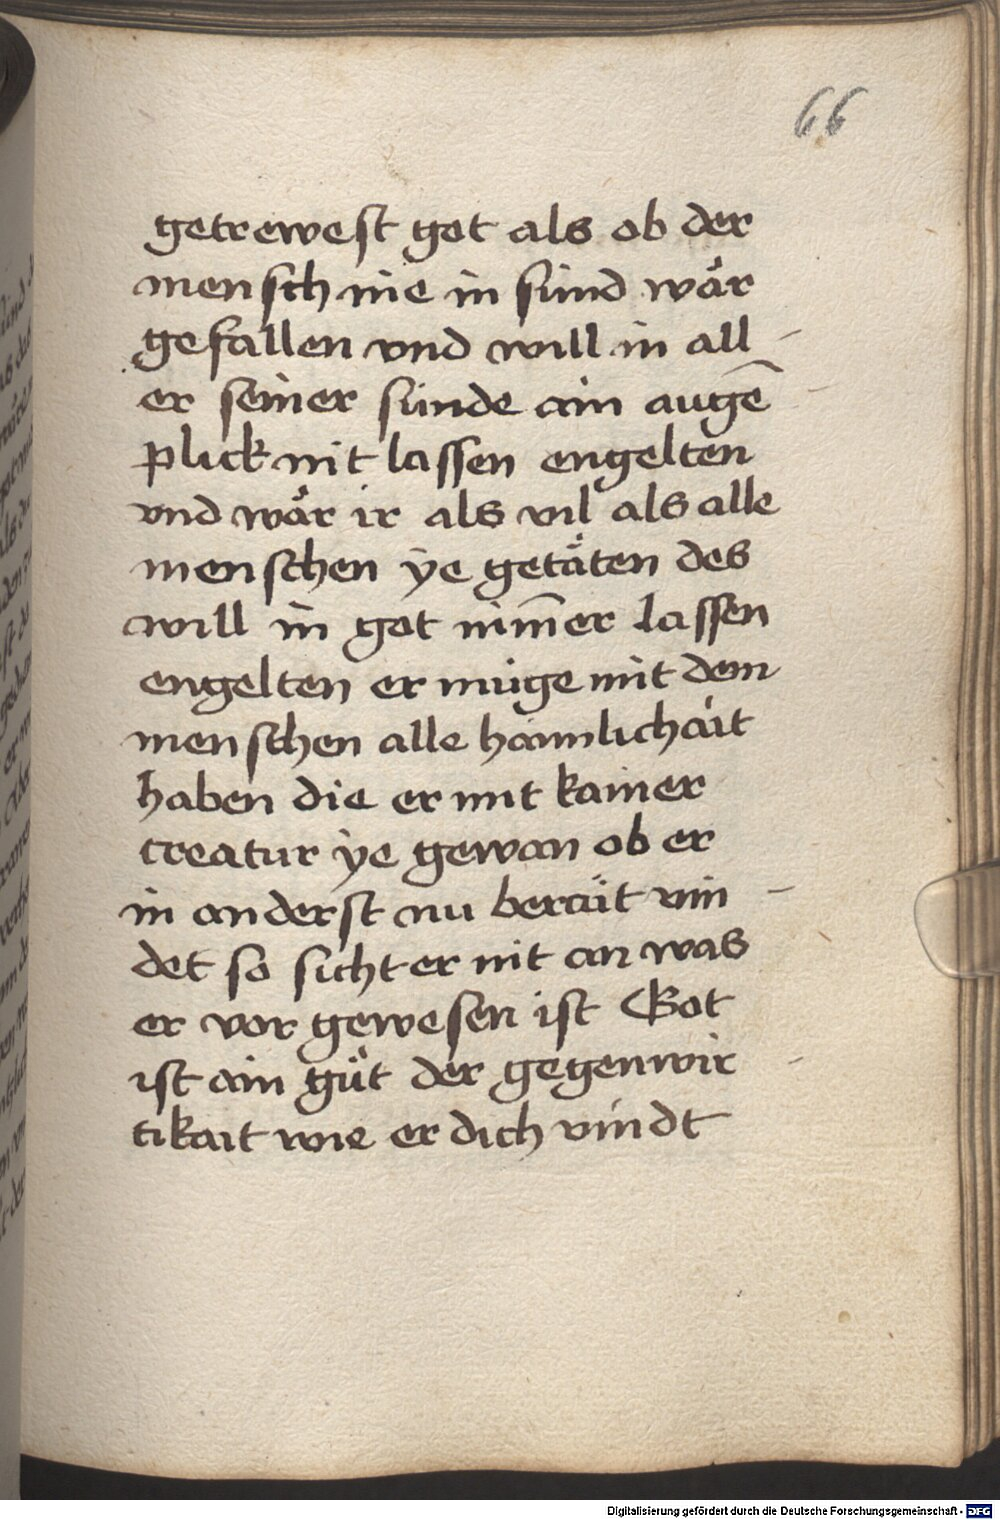 66
getrewest got als ob der
mensch nie in sünd wär
gefallen vnd will in all -
er seiner sünde ain augē -
plick nit lassen engelten
vnd wär ir als vil als alle
menschen ÿe getäten des
will in got nim̄er lassen
engelten er müge mit dem
menschen alle haimlichait
haben die er mit kainer
creatur ÿe gewan ob er
in anderst nu berait vin -
det so sicht er nit an was
er vor gewesen ist Got
ist ain güt der gegenwir -
tikait wie er dich vindt
Digitalisierung gefördert durch die Deutsche Forschungsgemeinschaft - DFG